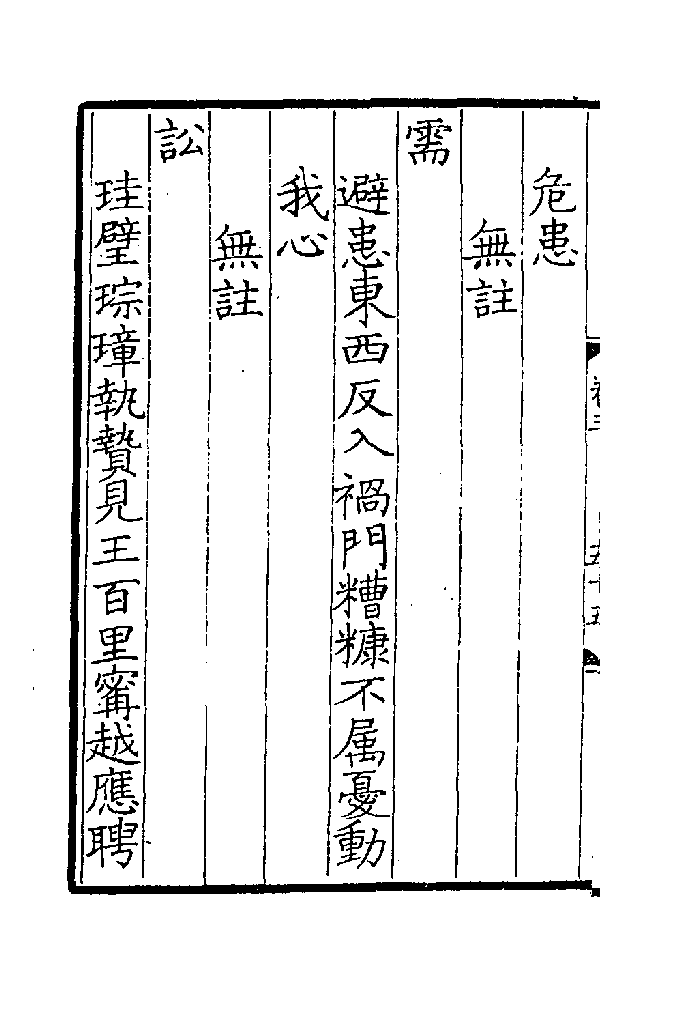 危患
無註
需
避患東西反入禍門糟糠不属憂動
我心
無註
訟
珪璧琮璋執贄見王百里甯越應聘